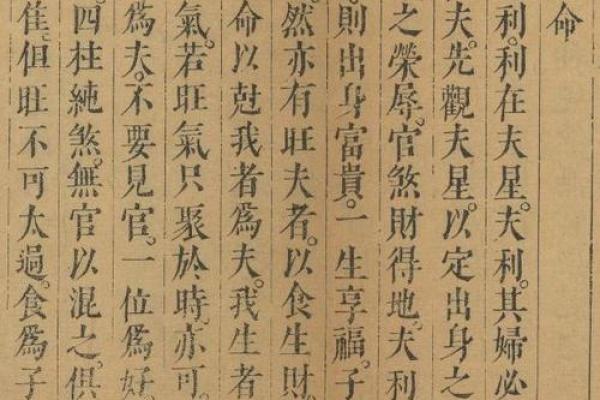 命
利。利在夫星。夫利。其婦必
夫。先觀夫星。以定出身之
之榮辱。官煞財得地。夫利
則出身富貴。一生享福。子
然亦有旺夫者。以食生財
命以尅我者爲夫。我生者
氣。若旺氣只聚於時。亦可
爲夫。不要見官。一位爲好
四柱純煞。無官以混之。俱
佳。但旺不可太過。食爲子